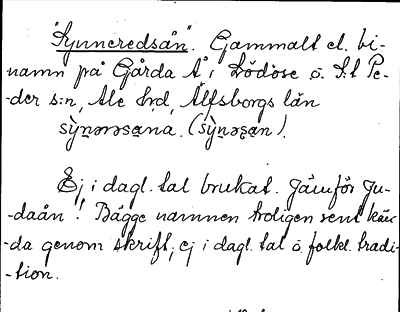 "Synneredsån". Gammalt el. bi-
namn på Gårda Å i Lödöse o. S:t Pe-
-der s:n, Ale hrd, Älfsborgs län
sỳṉərəsa̱na. (sỳṉəʂa̱n).
Ej i dagl. tal brukat. Jämför Ju-
-daån! Bägge namnen troligen rent kän-
-da genom skrift, ej i dagl. tal o. folkl. tradi-
-tion.